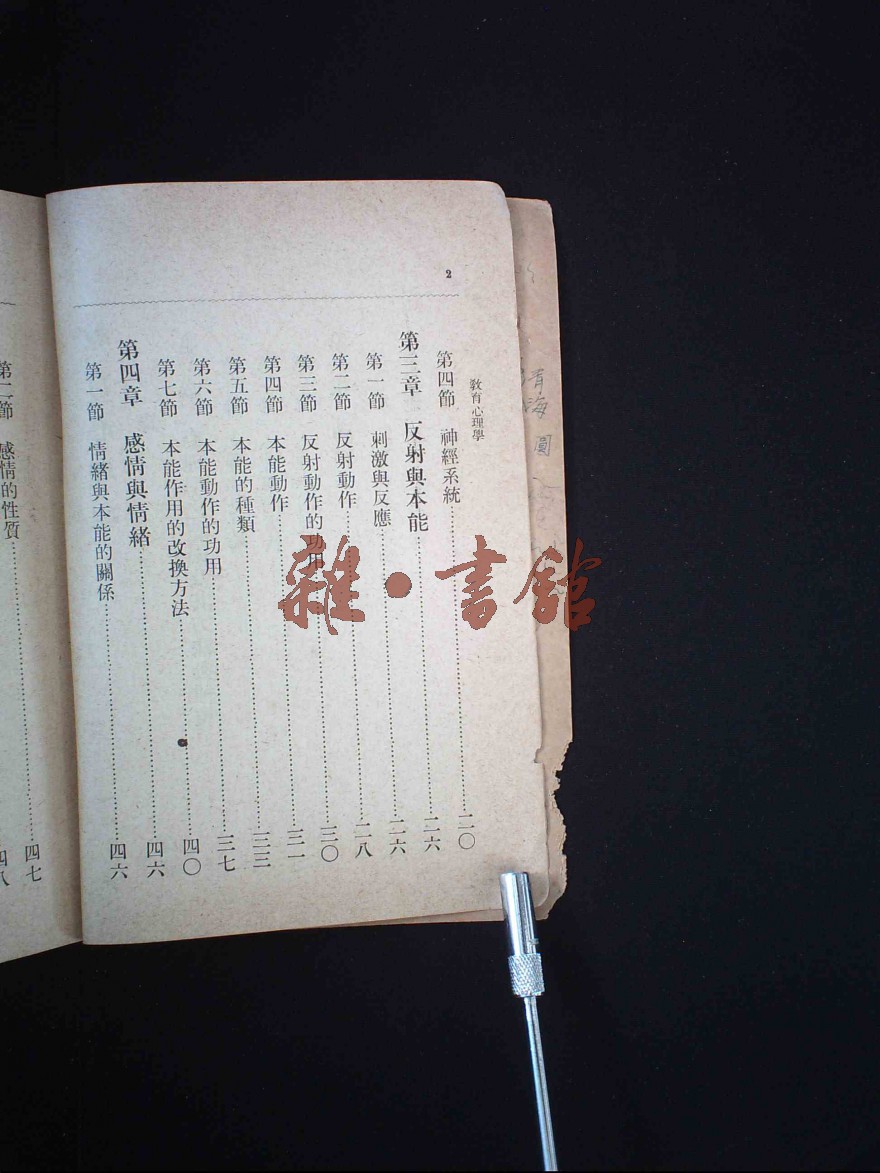 2
教育心理學
第四節 神經系統……二〇
第三章 反射與本能……二六
第一節 刺激與反應……二六
第二節 反射動作……二八
第三節 反射動作的功用……三〇
第四節 本能動作……三一
第五節 本能的種類……三三
第六節 本能動作的功用……三七
第七節 本能作用的改換方法……四〇
第四章 感情與情緒……四六
第一節 情緒與本能的關係……四六
第二節 感情的性質……四七
四八
雜·書館
青海
圓